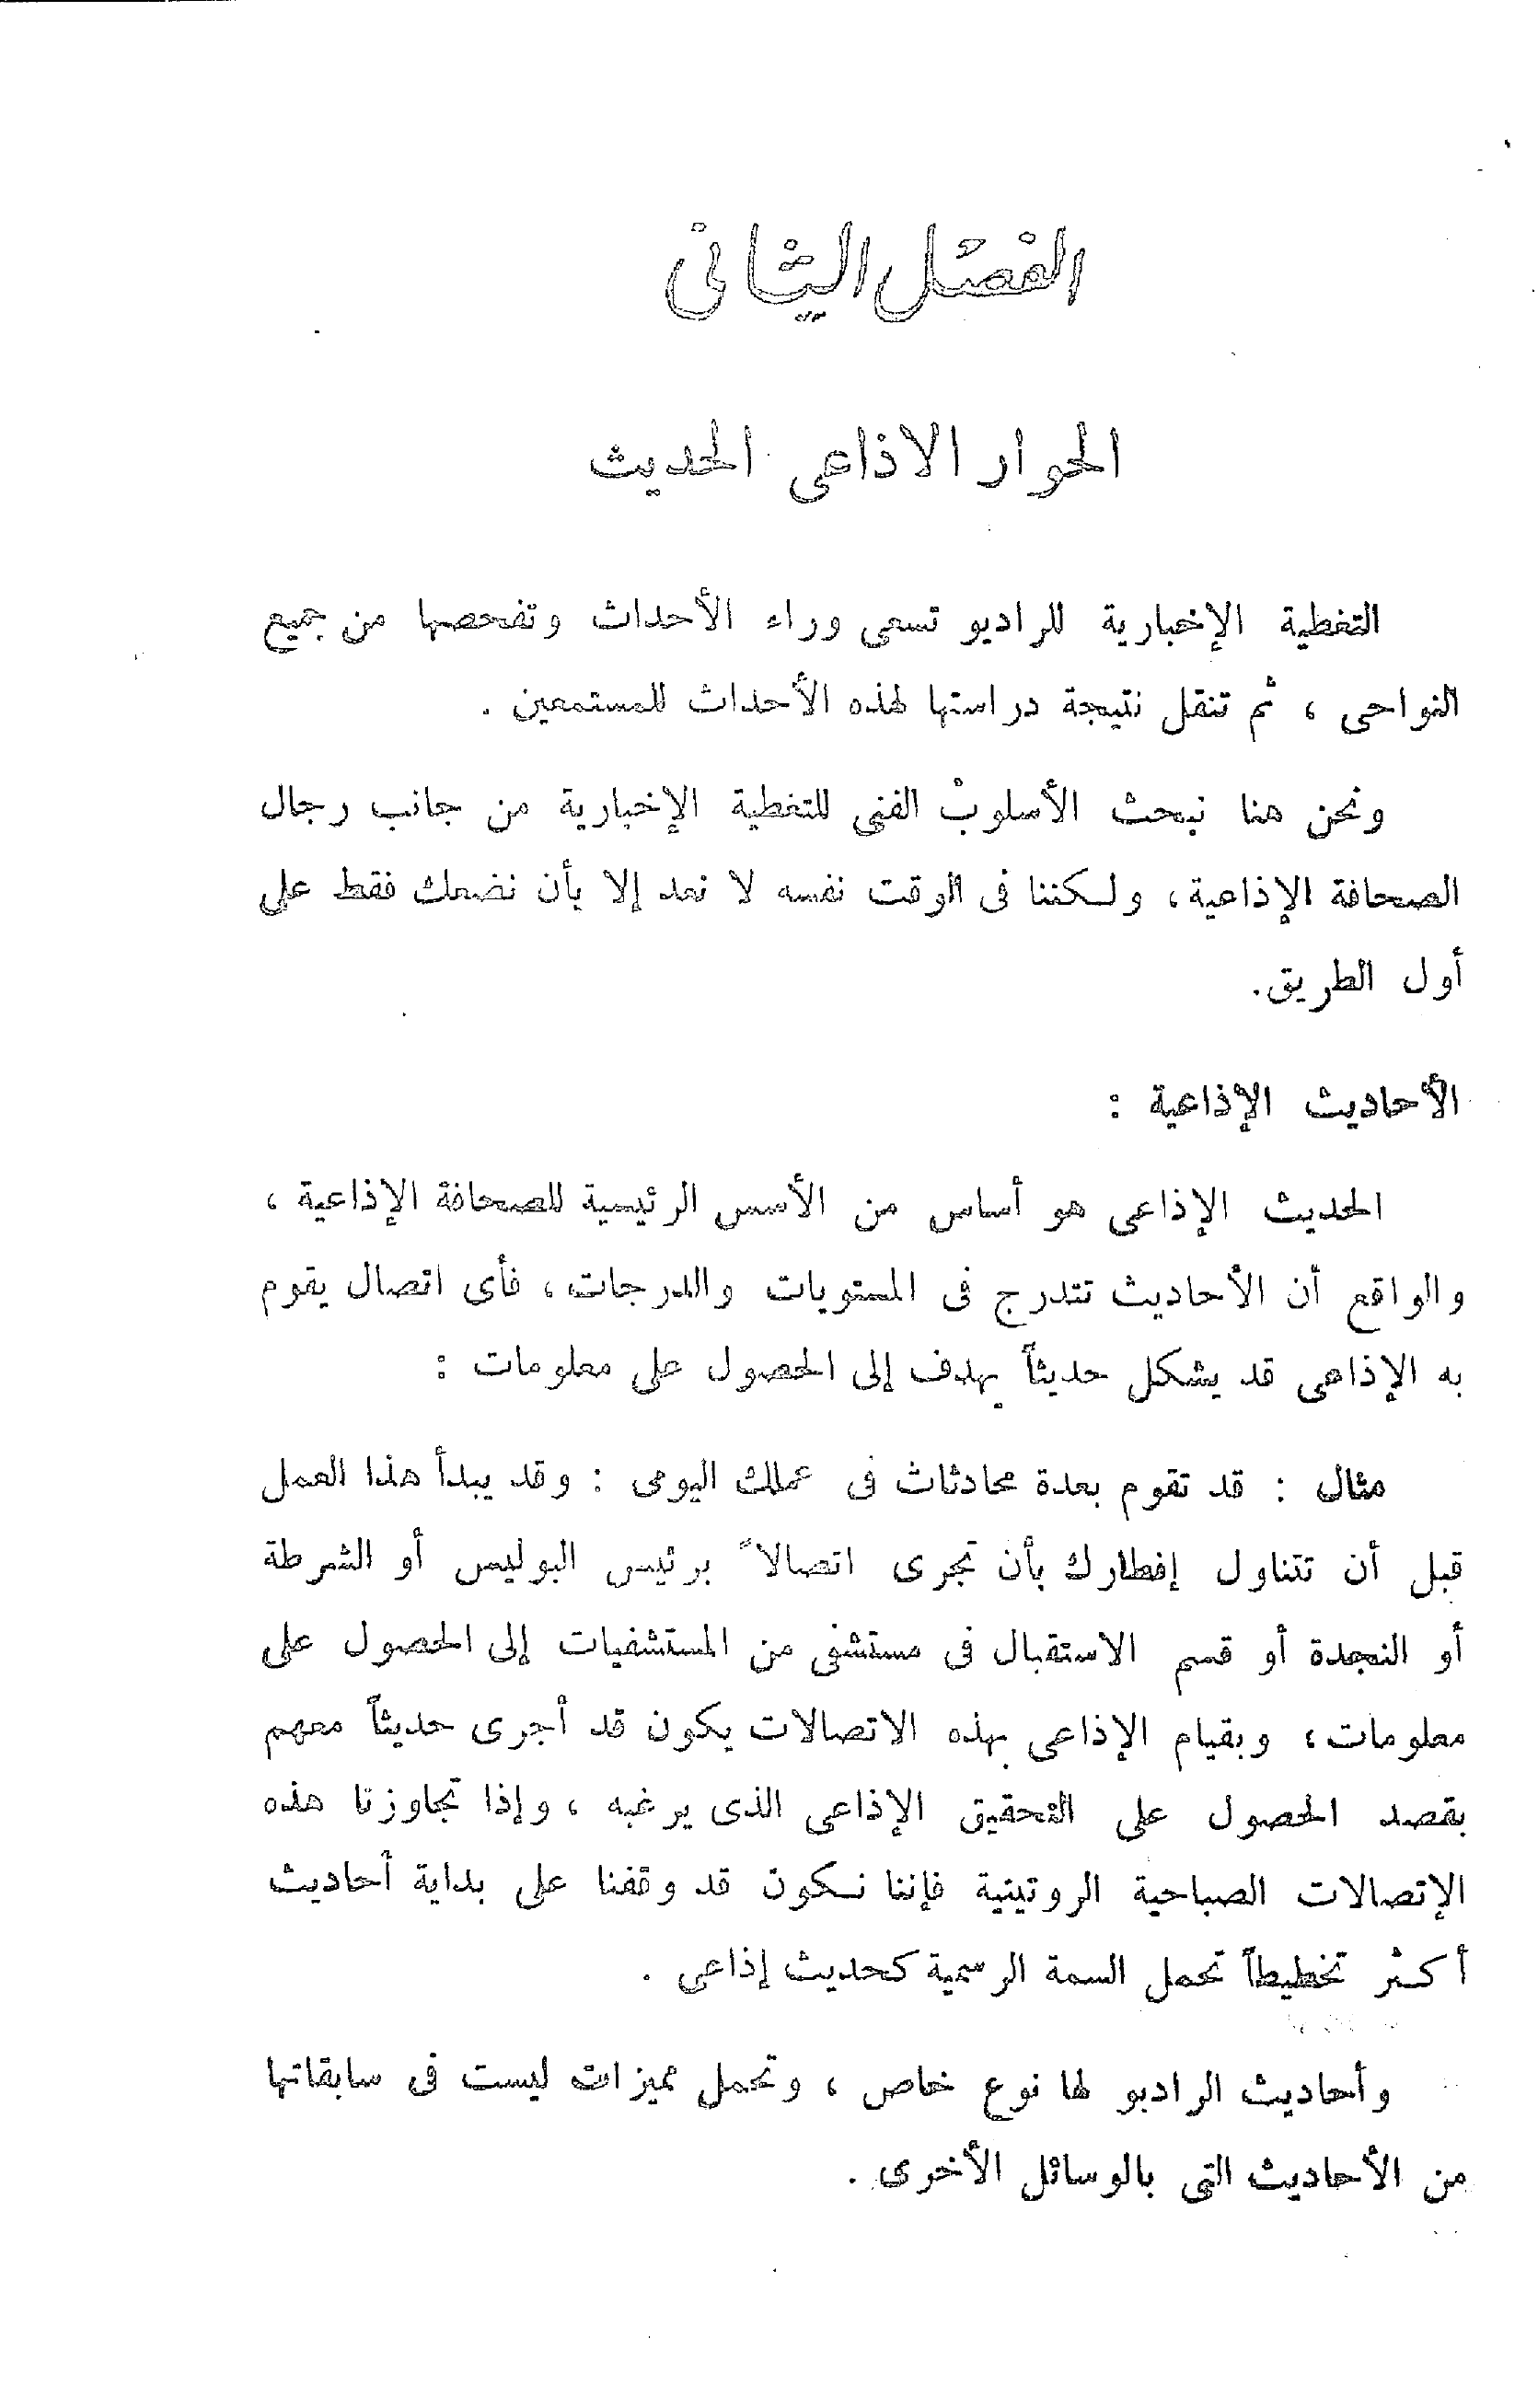 الفصل الثانى
الحوار الاذاعى الحديث
التغطية الإخبارية للراديو تسعى وراء الأحداث وتفحصها من جميع
النواحى ، ثم تنقل نتيجة دراستها لهذه الأحداث للمستمعين .
ونحن هنا نبحث الأسلوبْ الفنى للتغطية الإخبارية من جانب رجال
الصحافة الإذاعية ، ولكننا فى الوقت نفسه لا نعد إلا بأن نضعك فقط على
أول الطريق .
الأحاديث الإذاعية :
الحديث الإذاعى هو أساس من الأسس الرئيسية للصحافة الإذاعية ،
والواقع أن الأحاديث تتدرج فى المستويات والدرجات ، فأى اتصال يقوم
به الإذاعى قد يشكل حديثاً يهدف إلى الحصول على معلومات :
مثال : قد تقوم بعدة محادثات فى عملك اليومى : وقد يبدأ هذا العمل
قبل أن تتناول إفطارك بأن تجرى اتصالاً برئيس البوليس أو الشرطة
أو النجدة أو قسم الاستقبال فى مستشفى من المستشفيات إلى الحصول على
معلومات ، وبقيام الإذاعى بهذه الاتصالات يكون قد أجرى حديثاً معهم
بقصد الحصول على التحقيق الإذاعى الذى يرغبه ، وإذا تجاوزنا هذه
الإتصالات الصباحية الروتينية فإننا نكون قد وقفنا على بداية أحاديث
أكثر تخطيطاً تحمل السمة الرسمية كحديث إذاعى .
وأحاديث الراديو لها نوع خاص ، وتحمل مميزات ليست فى سابقاتها
من الأحاديث التى بالوسائل الأخرى .